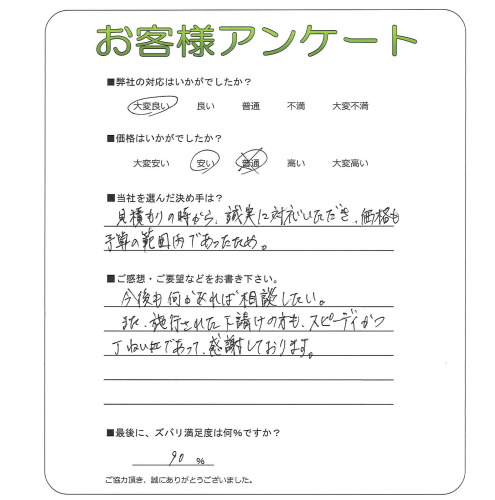 お客様アンケート
■弊社の対応はいかがでしたか？
大変良い 良い 普通 不満 大変不満
■価格はいかがでしたか？
大変安い 安い 普通 高い 大変高い
■当社を選んだ決め手は？
見積もりの時から、誠実に対応いただき、価格も
予算の範囲内であったため。
■ご感想・ご要望などをお書き下さい。
今後も何かあれば相談したい。
また、施行された下請けの方も、スピーディかつ
丁ねいであって、感謝しております。
■最後に、ズバリ満足度は何%ですか？
90 %
ご協力頂き、誠にありがとうございました。